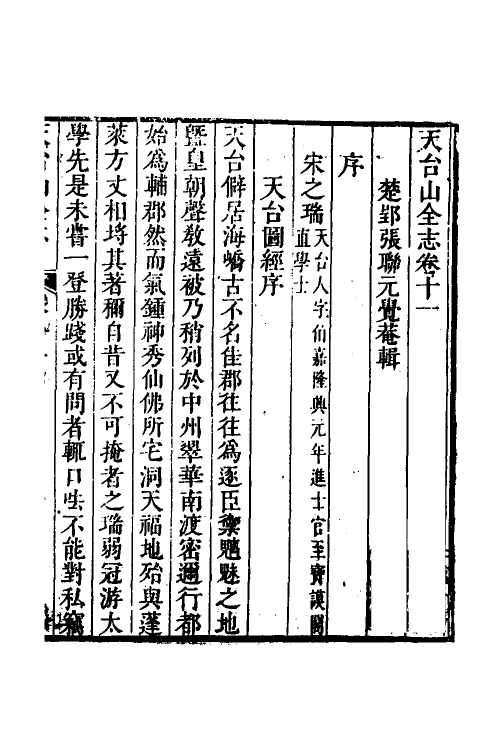 天台山全志卷十一
楚郢張聯元覺菴輯
序
宋之瑞天台人字伯嘉隆興元年進士官至寶謨閣直學士
天台圖經序
天台僻居海嶠古不名佳郡往往爲逐臣禦魑魅之地
曁皇朝聲敎遠被乃稍列於中州翠華南渡密邇行都
始爲輔郡然而氣鍾神秀仙佛所宅洞天福地殆與蓬
萊方丈相埓其著稱自昔又不可掩者之瑞弱冠游太
學先是未嘗一登勝踐或有問者輒口呿不能對私竊